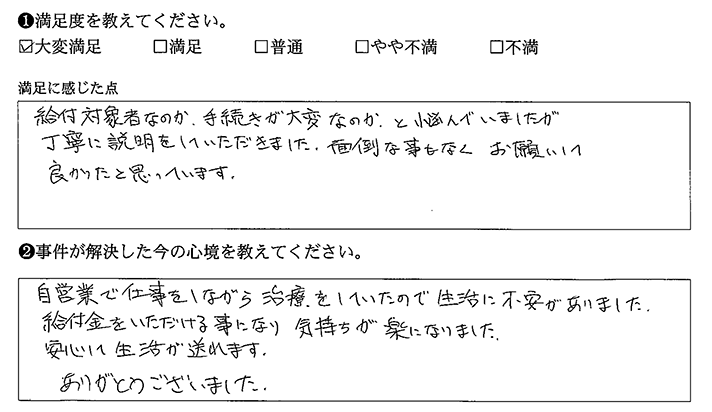 ❶満足度を教えてください。
☑大変満足 □満足 □普通 □やや不満 □不満
満足に感じた点
給付対象者なのか、手続きが大変なのか、と悩んでいましたが
丁寧に説明をしていただきました。面倒な事もなく お願いして
良かったと思っています。
❷事件が解決した今の心境を教えてください。
自営業で仕事をしながら治療をしていたので生活に不安がありました。
給付金をいただける事になり 気持ちが楽になりました。
安心して生活が送れます。
ありがとうございました。